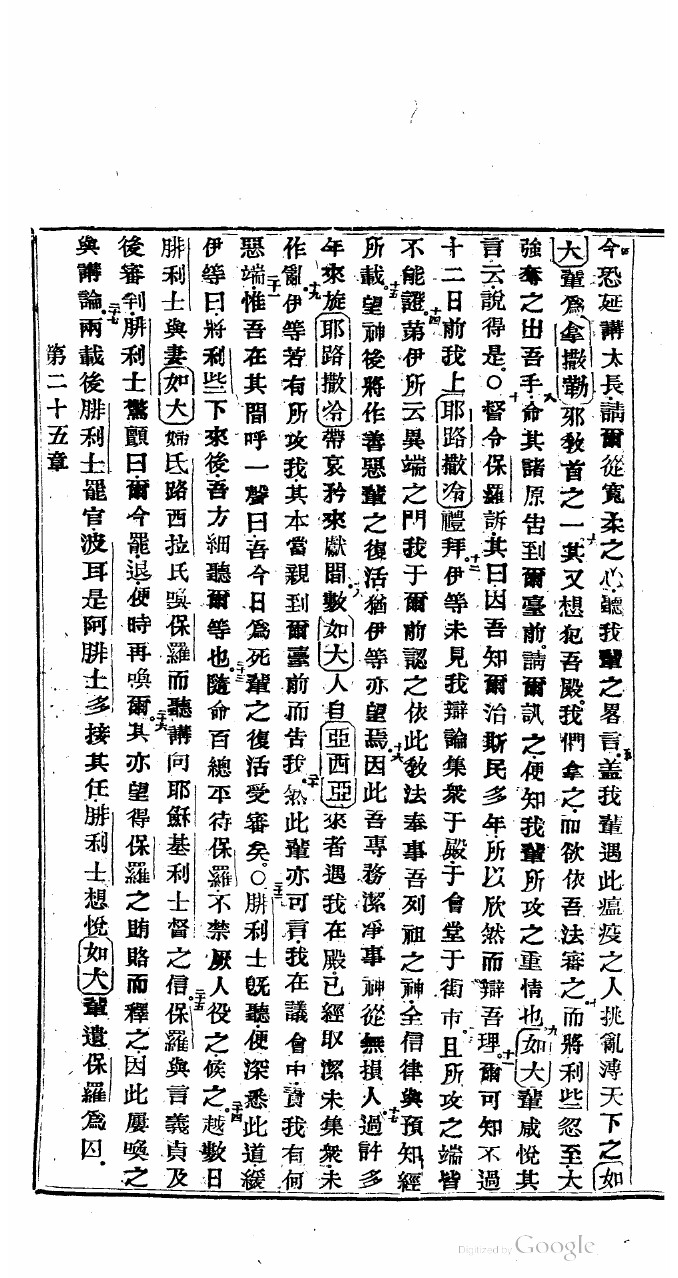 今恐延講太長請爾從寬柔之心聽我輩之畧言盖我輩遇此瘟疫之人挑亂溥天下之如
大輩爲拿撒勒邪敎首之一其又想犯吾殿我們拿之而欲依吾法審之而將利些忽至大
強奪之出吾手命其諸原告到爾臺前請爾訊之便知我輩所攻之重情也如大輩咸悅其
言云說得是○督令保羅訴其曰因吾知爾治斯民多年所以欣然而辯吾理爾可知不過
十二日前我上耶路撒冷禮拜伊等未見我辯論集衆于殿于會堂于街市且所攻之端皆
不能證苐伊所云異端之門我于爾前認之依此敎法奉事吾列祖之神全信律與預知經
所載望神後將作善惡輩之復活猶伊等亦望焉因此吾專務潔淨事神從無損人過許多
年來旋耶路撒冷帶哀矜來獻間數如大人自亞西亞來者遇我在殿已經取潔未集衆未
作亂伊等若有所攻我其本當親到爾臺前而告我然此輩亦可言我在議會中實我有何
惡端惟吾在其間呼一聲曰吾今日爲死輩之復活受審矣○腓利士旣聽便深悉此道緩
伊等曰將利些下來後吾方細聽爾等也隨命百總平待保羅不禁厥人役之候之越數日
腓利士與妻如大婦氏路西拉氏喚保羅而聽講向耶穌基利士督之信保羅與言義貞及
後審判腓利士驚顫曰爾今罷退便時再喚爾其亦望得保羅之賄賂而釋之因此屢喚之
與講論兩載後腓利士罷官波耳是阿腓士多接其任腓利士想悅如大輩遺保羅爲囚
第二十五章
Digitized by Google